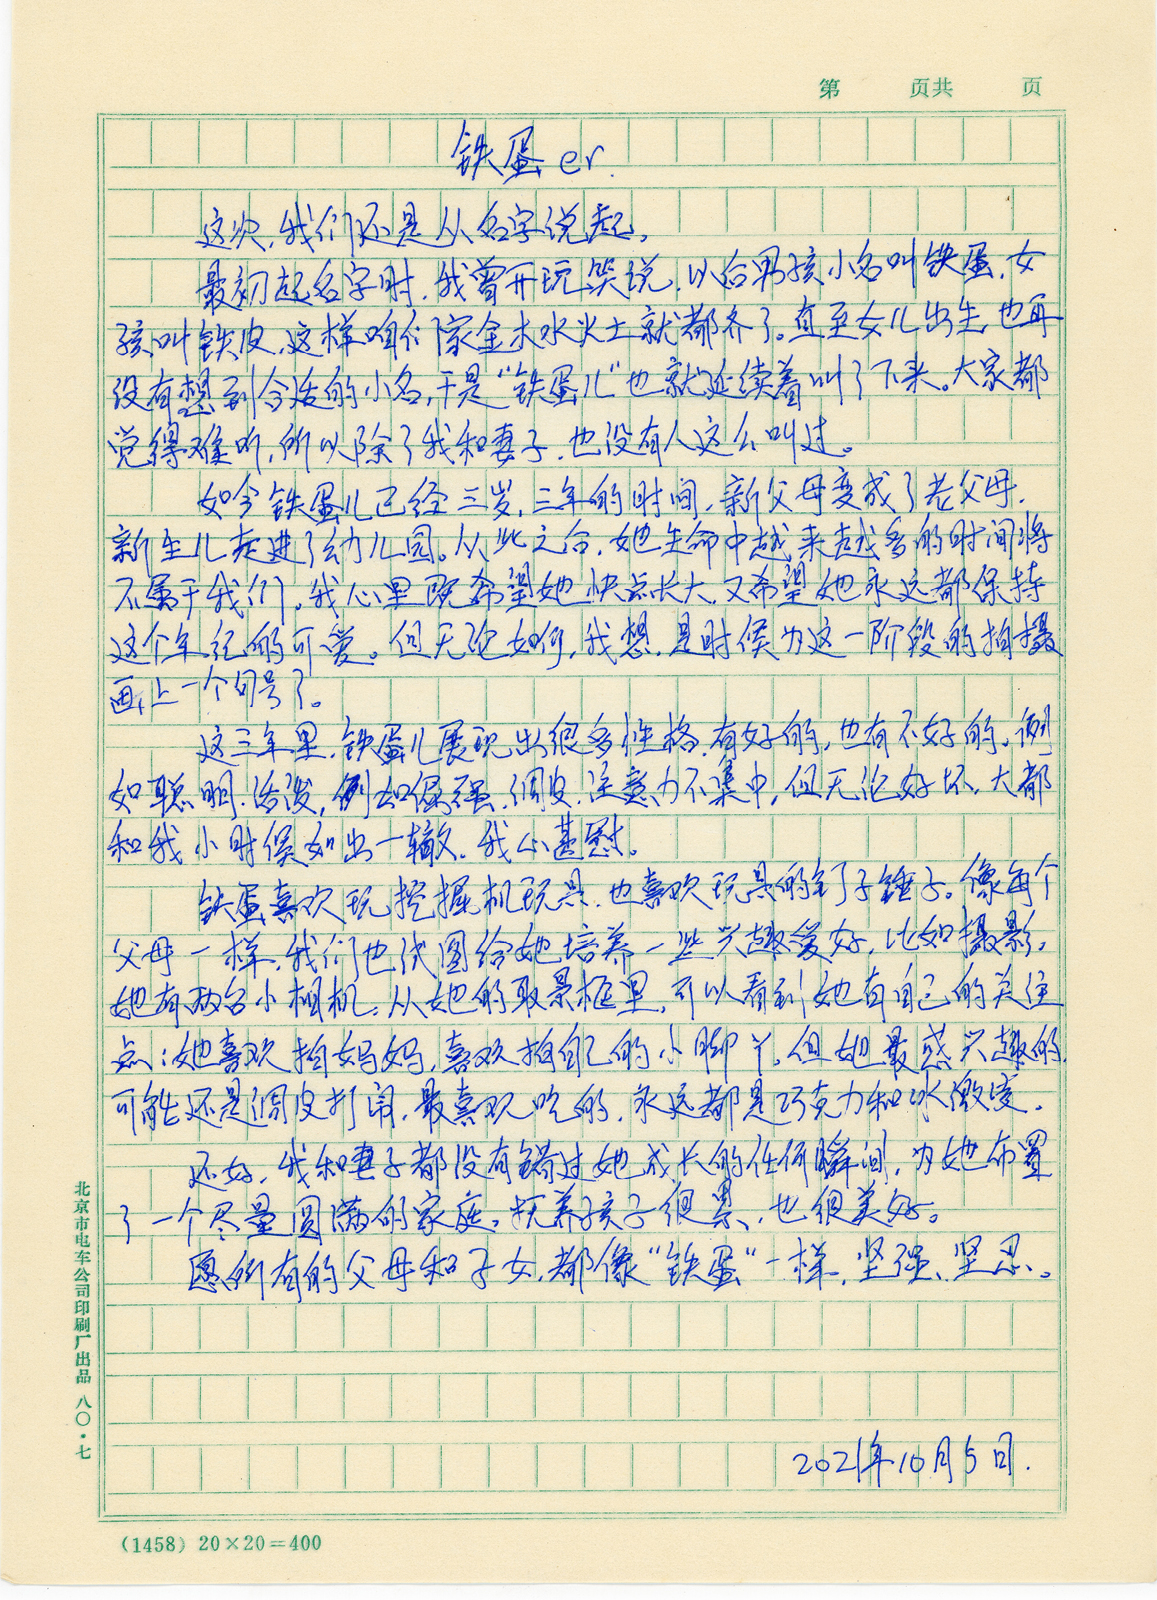 第 页共 页
铁蛋er.
这次,我们还是从名字说起。
最初起名字时,我曾开玩笑说,以后男孩小名叫铁蛋,女
孩叫铁皮,这样咱们家金木水火土就都齐了。直至女儿出生,也再
没有想到合适的小名,于是“铁蛋儿”也就延续着叫了下来。大家都
觉得难听,所以除了我和妻子,也没有人这么叫过。
如今铁蛋儿已经三岁,三年的时间,新父母变成了老父母,
新生儿走进了幼儿园。从此之后,她生命中越来越多的时间将
不属于我们。我心里既希望她快点长大,又希望她永远都保持
这个年纪的可爱。但无论如何,我想,是时候为这一阶段的拍摄
画上一个句号了。
这三年里,铁蛋儿展现出很多性格,有好的,也有不好的。例
如聪明、活泼,例如倔强、调皮、注意力不集中,但无论好坏,大都
和我小时候如出一辙。我心甚慰。
铁蛋喜欢玩挖掘机玩具,也喜欢玩具的钉子锤子。像每个
父母一样,我们也试图给她培养一些兴趣爱好,比如摄影。
她有两台小相机,从她的取景框里,可以看到她有自己的关注
点:她喜欢拍妈妈,喜欢拍自己的小脚丫。但她最感兴趣的,
可能还是调皮打闹,最喜欢吃的,永远都是巧克力和冰激凌。
还好,我和妻子都没有错过她成长的任何瞬间,为她布置
了一个尽量圆满的家庭。抚养孩子很累,也很美好。
愿所有的父母和子女,都像“铁蛋”一样,坚强、坚忍。
2021年10月5日.
北京市电车公司印刷厂出品 八〇·七
(1458) 20×20=400